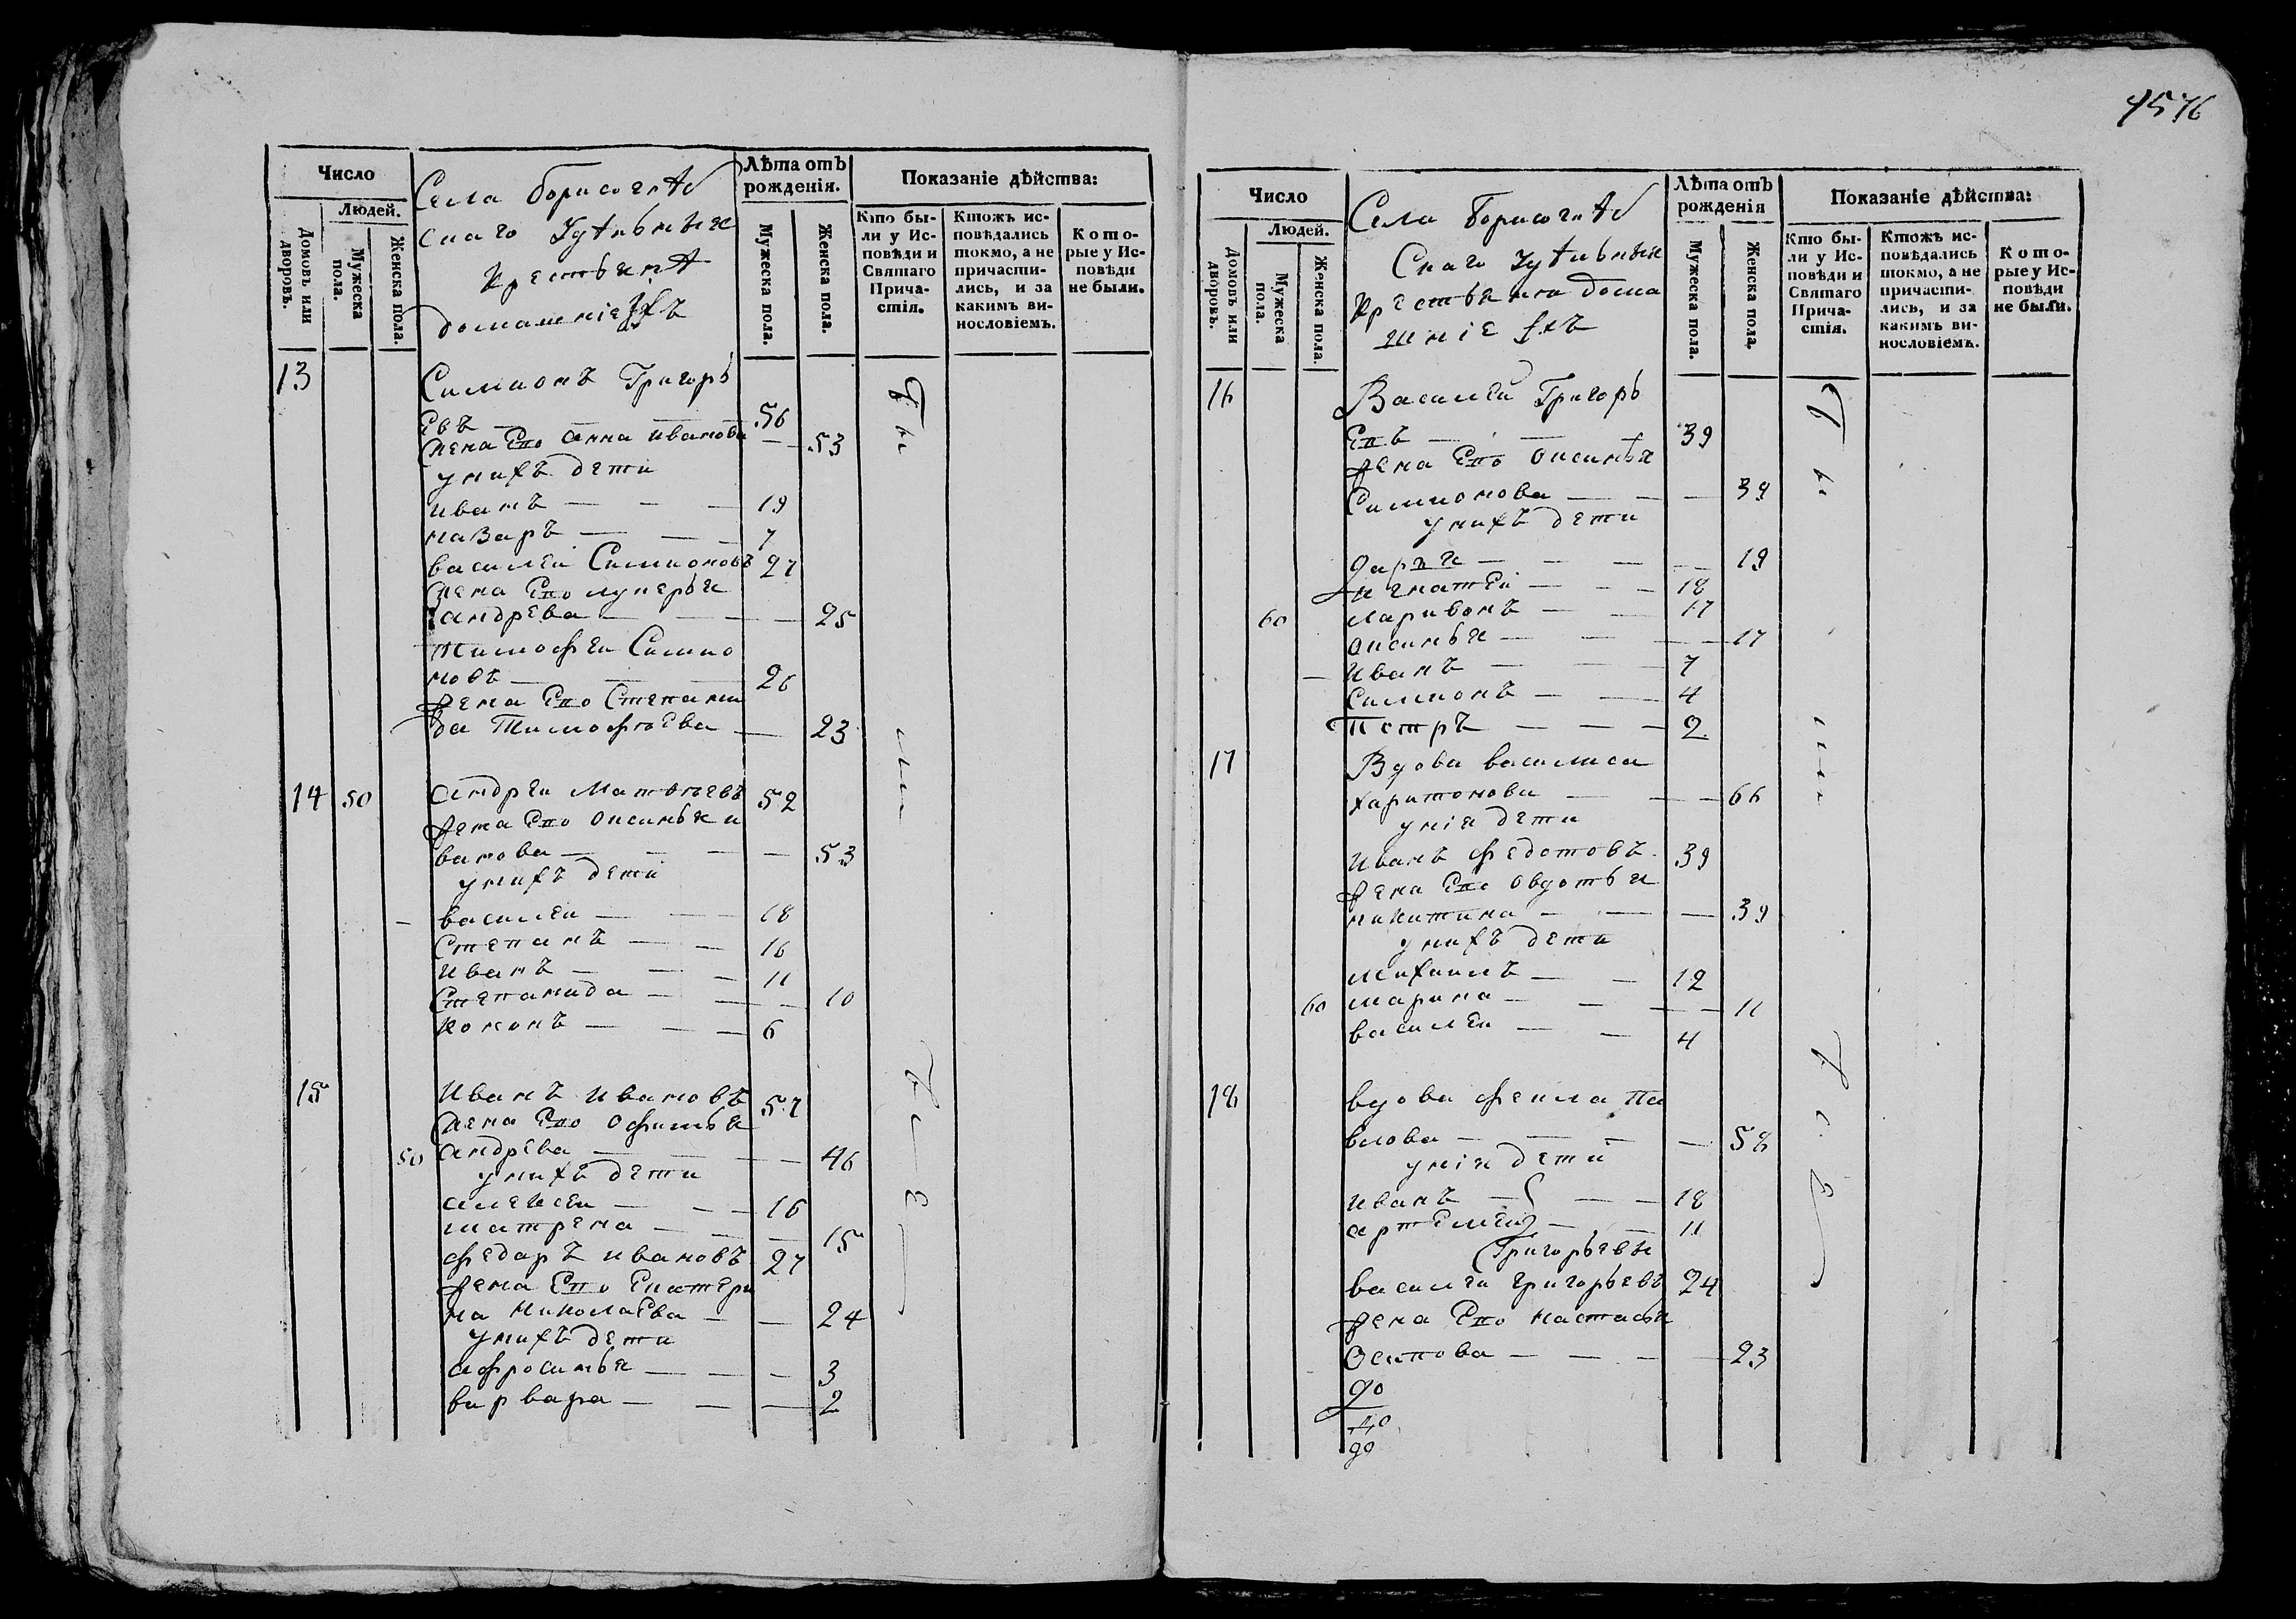 Число
Людей.
Домовъ или дворовъ.
Мужеска пола.
Женска пола.
Села борисогле
скаго удѣльныя
крестьяне
домашние ихъ
Лѣта отъ рожденія.
Мужеска пола.
Женска пола.
Показаніе дѣйства:
Кто бы-
ли у Ис-
повѣди и
Святаго
Прича-
стія.
Ктожъ ис-
повѣдались
токмо, а не
причасти-
лись, и за
какимъ ви-
нословіемъ.
Кото-
рые у Ис-
повѣди
не были.
13 Симионъ Григорь
евъ 56
жена Его анна иванова 53
унихъ дети
иванъ 19
назаръ 7
василеи Симионовъ 27
жена Его лукерья
андрева 25
тимофеи Симио
новъ 26
жена Его Степани
да Тимофѣева 23
14 50 андреи Матвѣевъ 52
жена Его оксинья и
ванова 53
унихъ дети
василеи 18
Степанъ 16
иванъ 11
Степанида 10
кононъ 6
15 Иванъ Ивановъ 57
жена Его офимья
50 андрева 46
унихъ дети
алексеи 16
матрена 15
федаръ ивановъ 27
жена Его Екатери
на николаева 24
унихъ дети
афросинья 3
варвара 2
бы
ли
Число
Людей.
Домовъ или дворовъ.
Мужеска пола.
Женска пола.
Села Борисогле
Скаго удѣльныя
крестьяна дома
шние ихъ
Лѣта отъ рожденія
Мужеска пола.
Женска пола.
Показаніе дѣйства:
Кто бы-
ли у Ис-
повѣди и
Святаго
Прича-
стія.
Ктожъ ис-
повѣдались
токмо, а не
причасти-
лись, и за
какимъ ви-
нословіемъ.
Кото-
рые у Ис-
повѣди
не были.
16 Василеи Григорь
Евъ 39
жена Его оксинья
Симионова 39
унихъ дети
дарья 19
игнатеи 18
60 ларивонъ 17
оксинья 17
иванъ 7
Симионъ 4
Петръ 2
17 Вдова василиса
харитонова 66
унія дети
иванъ федотовъ 39
жена Его овдотья
никитина 39
унихъ дети
михаилъ 12
60 марина 11
василеи 4
18 вдова фекла Па
влова 58
унія дети
иванъ 18
артемеи 11
Григорьевы
василеи григорьевъ 24
жена Его настасья
Осипова 23